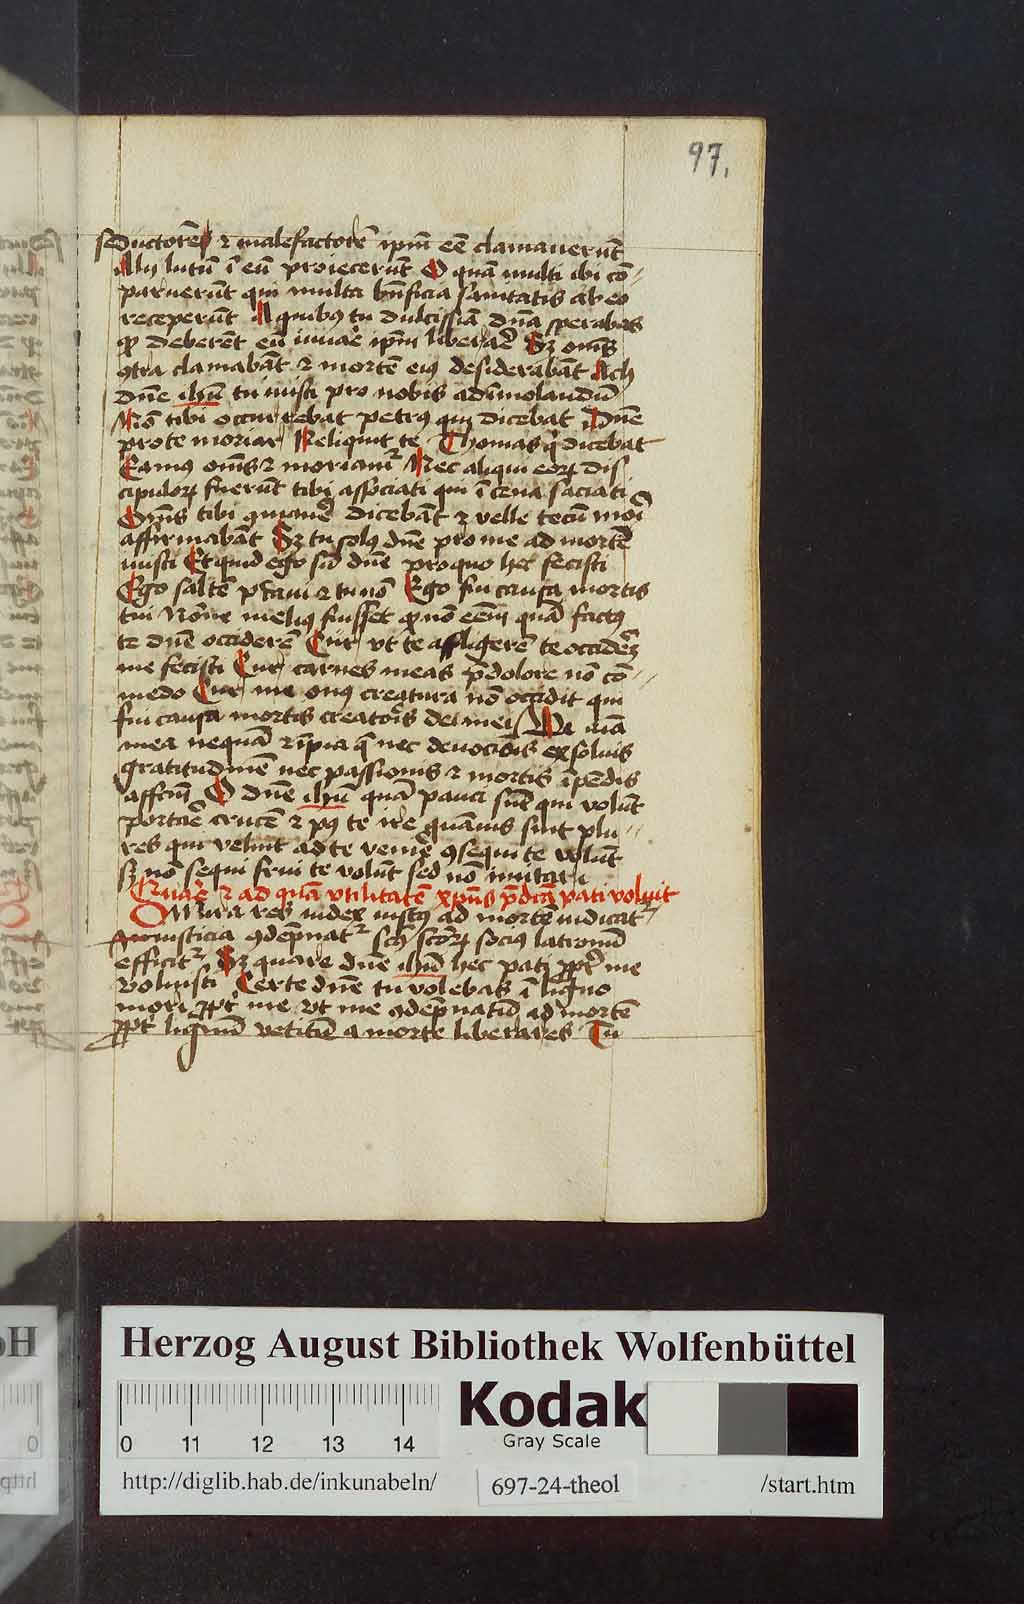 97.
seductorē ⁊ malefactorē ipm̄ eē clamauerūt
Alij lutū ī eū proiecerūt O quā multi ibi cō-
paruerūt qui multa bn̄ficia sanitatis ab eo
receperūt A quibꝰ tu dulcissīa dn̄a sperabas
ꝙ deberēt eū iuuāe ipm̄ liberāe Sꝫ om̄s
ꝯtra clamabāt ⁊ mortē eiꝰ desiderabāt Ach
dn̄e ihū tu iuisti pro nobis ad īmolandū
Nō tibi occurrebat petrꝰ qui dicebat Dn̄e
pro te moriar Reliquit te Thomas q̄ dicebat
Eamꝰ om̄s ⁊ moriamᷣ Nec aliqui eoꝝ dis
cipuloꝝ fuerūt tibi associati qui ī cena saciati
Om̄s tibi dicebāt ⁊ velle tecū mōi
affirmabāt Sꝫ tu solꝰ dn̄e pro me ad mortē
iuisti Et quid ego sū dn̄e pro quo hec fecisti
Ego saltē pctāui ⁊ tu nō Ego fui causa mortis
tui Nōne meliꝰ fuisset ꝙ nō eēm quā factꝰ
te dn̄e occiderē Cur vt te affligerē te occidēꝫ
me fecisti Cur carnes meas p̄ dolore nō cō-
medo Cur me oīꝰ creatura nō occidit qui
fui causa mortis creatoris dei mei Ve aīa
mea nequā ⁊ īpia q̄ nec deuociōis exsoluis
gratitudinē nec passionis ⁊ mortis īpēdis
affc̄m O dn̄e ihū quā pauci sūt qui volūt
portāe crucē ⁊ pꝰ te ire quāuis sint plu-
res qui velint ad te venire ꝯsequi te volūt
sꝫ nō sequi frui te volūt sed nō imitari
Quāe ⁊ ad quā vtilitatē xpūs p̄dcā pati voluit
O Mira res iudex iustꝰ ad mortē iudicatᷣ
iusticia ꝯdēpnatᷣ scs̄ scōꝝ sociꝰ latronū
efficitᷣ Sꝫ quare dn̄e ihū hec pati ꝓpt̄ me
voluisti Certe dn̄e tu volebas ī ligno
mori ꝓpt̄ me vt me ꝯdēpnatū ad mortē
ꝓpt̄ lignū vetitū a morte liberares Tu
Herzog August Bibliothek Wolfenbüttel
Kodak
Gray Scale
0 11 12 13 14
http://diglib.hab.de/inkunabeln/
697-24-theol
/start.htm